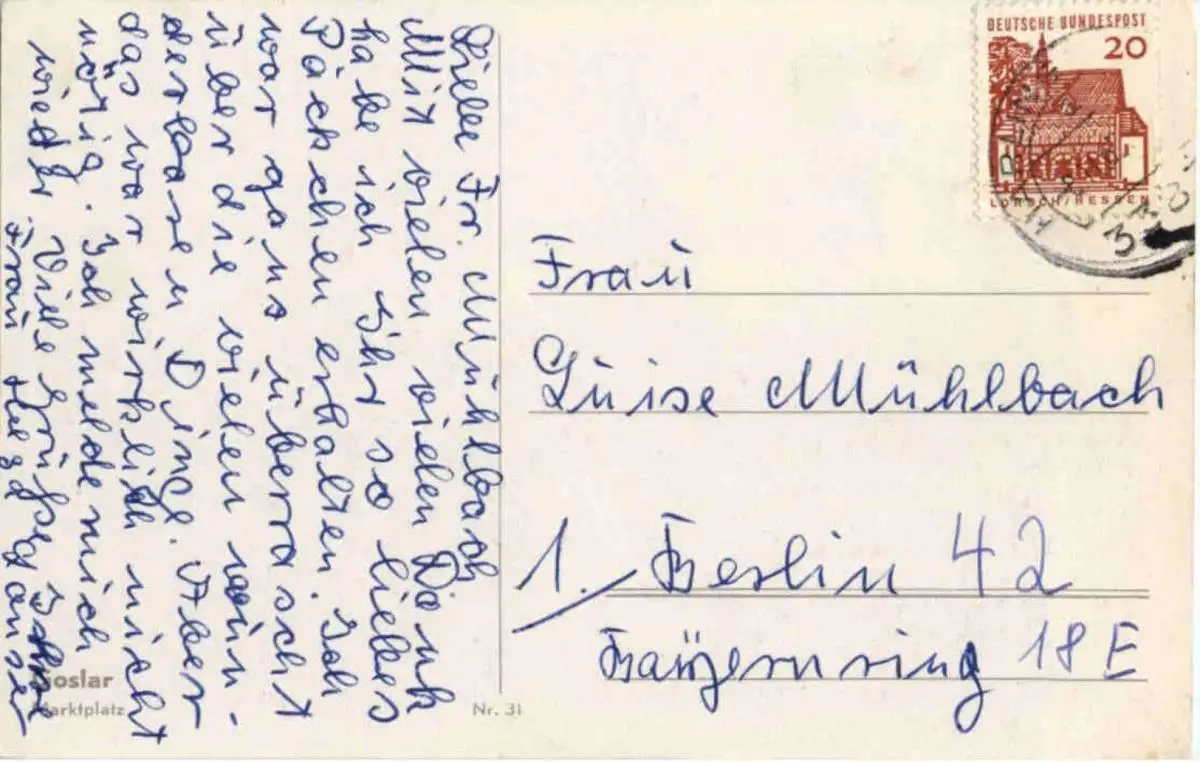 Liebe Fr. Mühlbach
Mit vielen vielen Dank
habe ich Ihr so liebes
Päckchen erhalten. Ich
war ganz überrascht
über die vielen wun-
derbaren Dinge. Aber
das war wirklich nicht
nötig. Ich melde mich
wieder. Viele Grüße Ihre
Frau Helga
DEUTSCHE BUNDESPOST
20
LORSCH/HESSEN
Frau
Luise Mühlbach
1. Berlin 42
18 E
Goslar
Marktplatz
Nr. 31